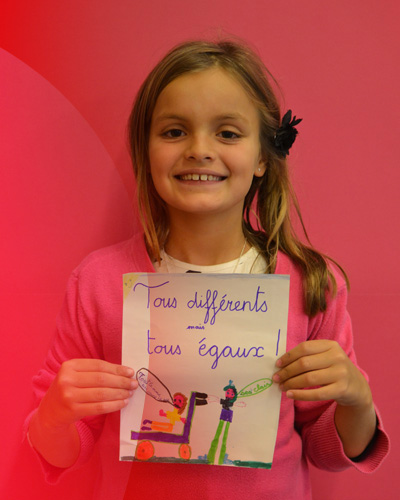 Tous différents
mais
tous égaux !